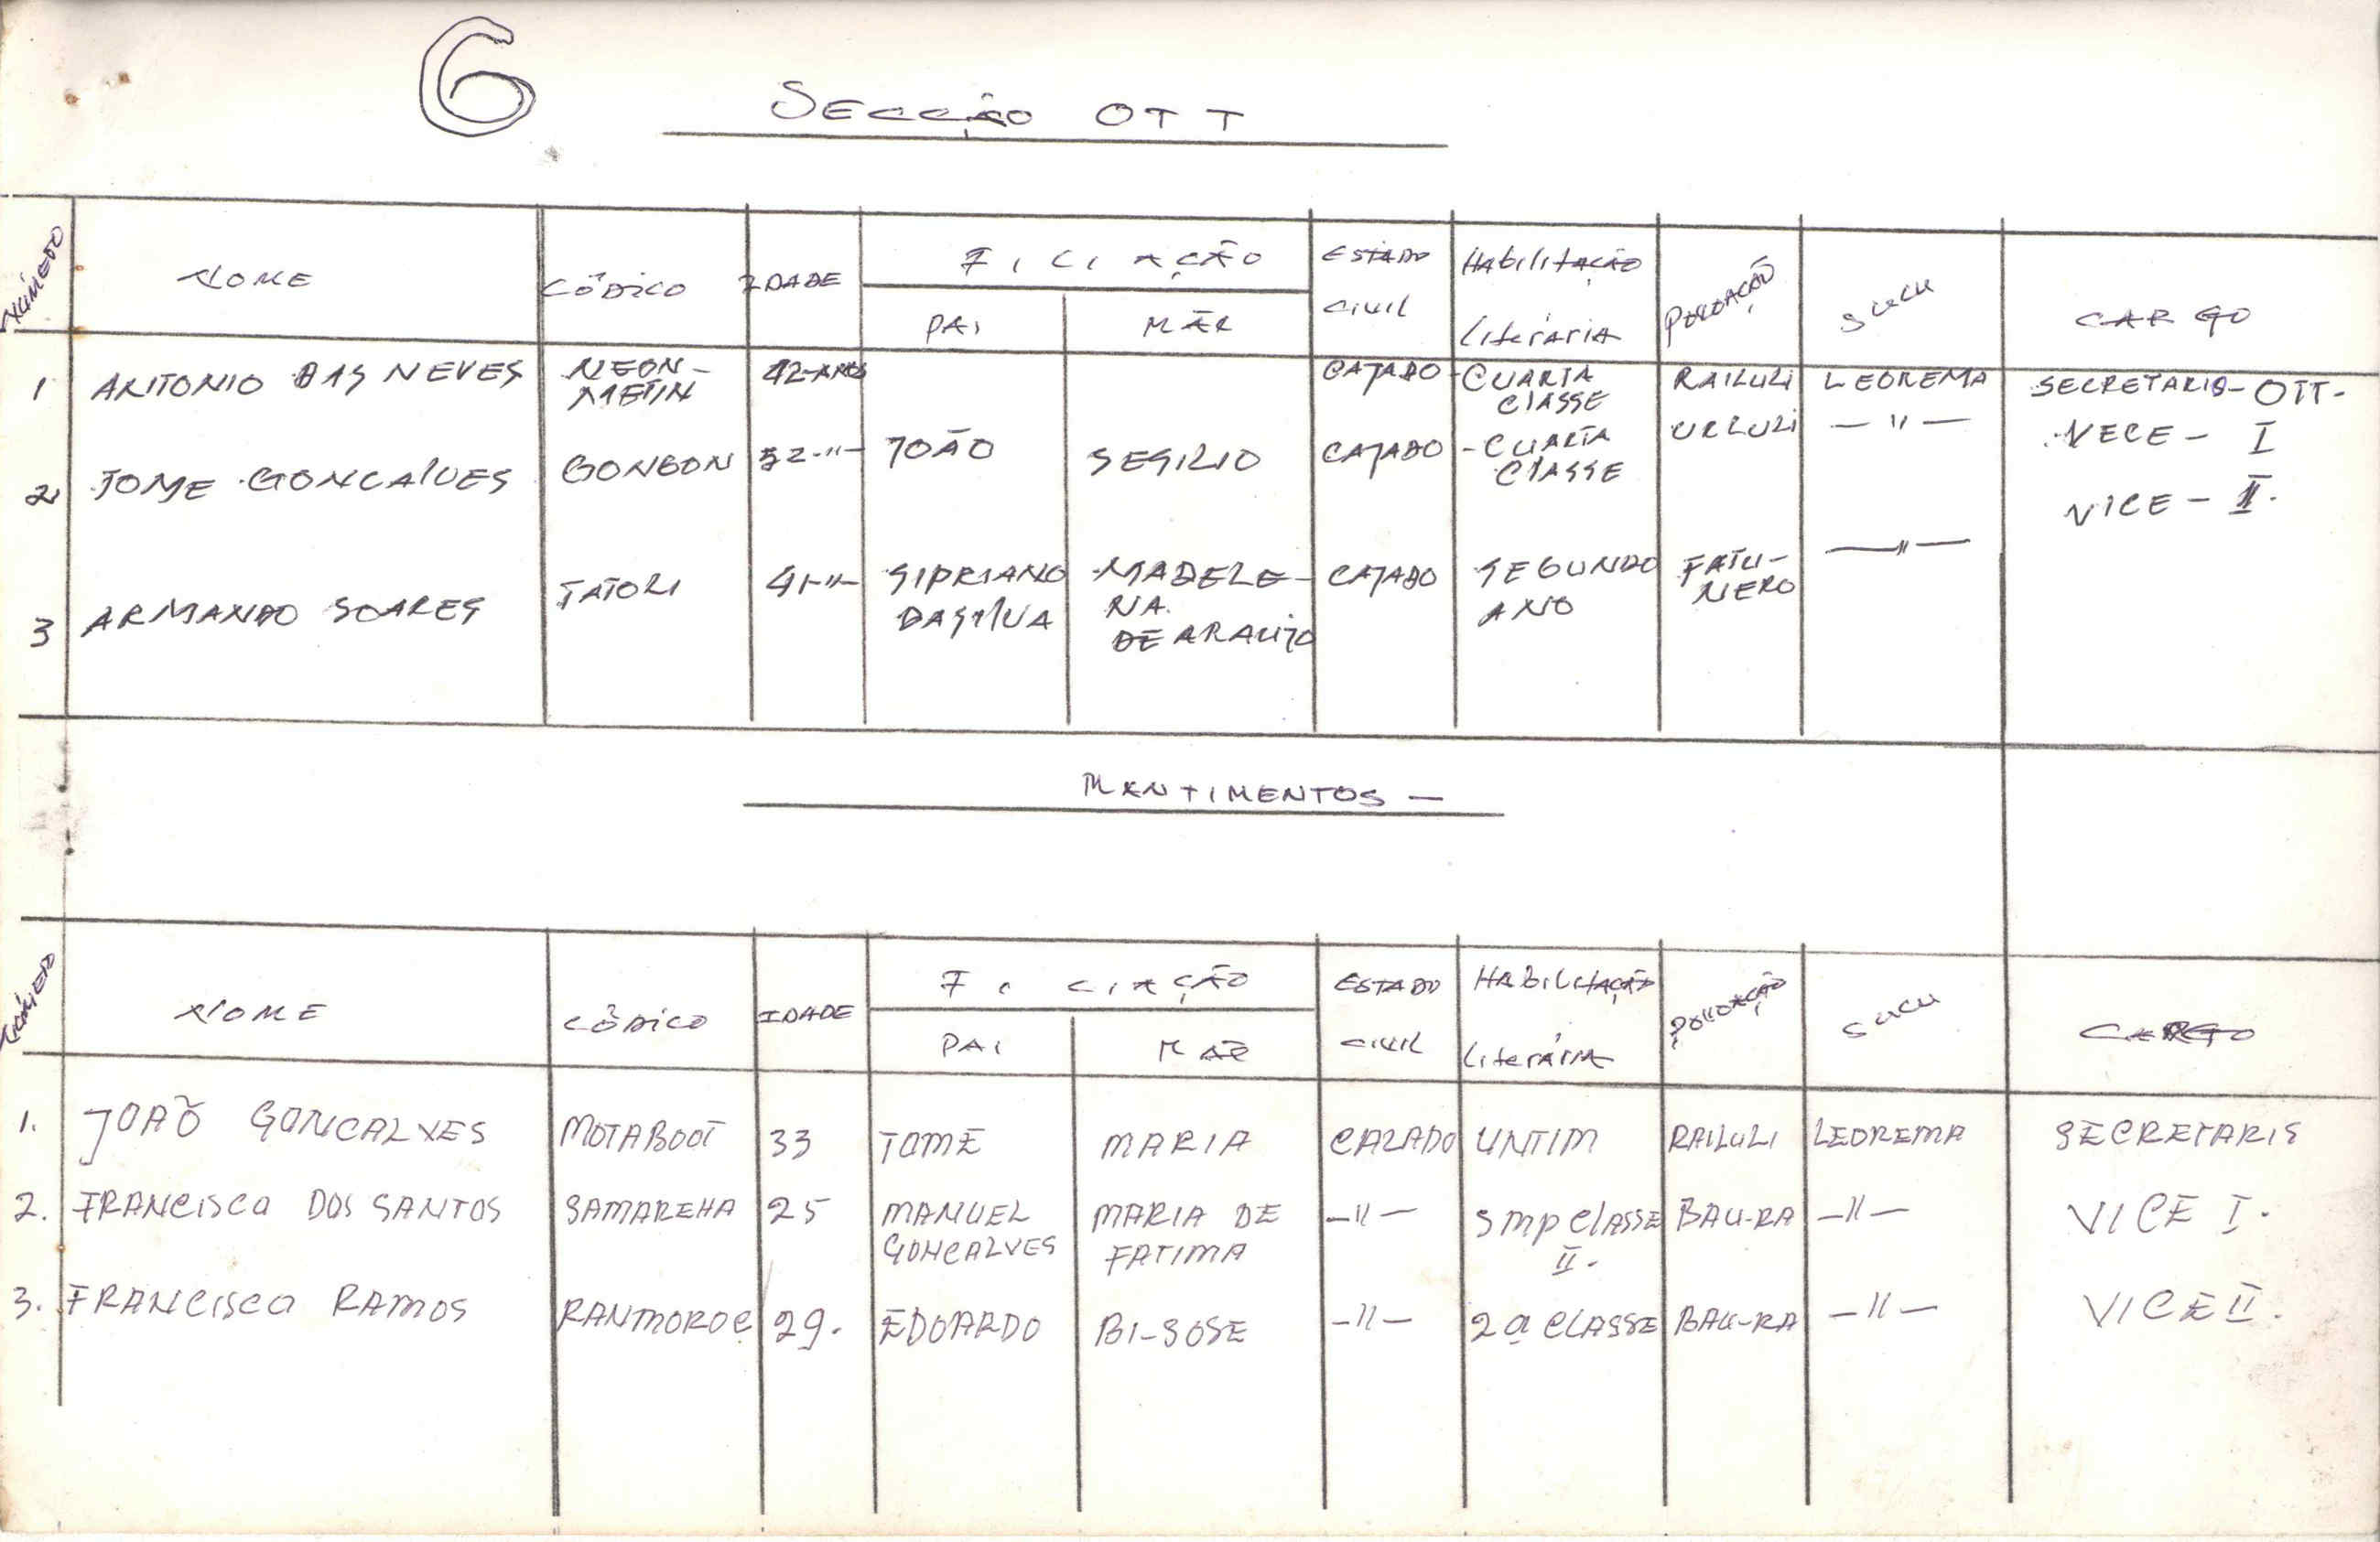 6
SECCÃO OTT
NÚMERO NOME CÓDICO IDADE FICIAÇÃO ESTADO CIVIL Habilitação Literária POVOAÇÃO SUCU CARGO
PAI MÃE
1 ANTONIO DAS NEVES NEON-METIN 42-ANOS CAJADO CUARTA CLASSE RAILULI LEOREMA SECRETARIO-OTT-
2 TOME GONCALVES GONGON 52-"- JOÃO SEGILIO CAJADO -CUARTA CLASSE URLULI -"- VECE - I
3 ARMANDO SOARES TATORI 41-"- SIPRIANO DASILVA MADELE-NA DE ARAUJO CAJADO SEGUNDO ANO FATU-NERO -"- VICE - II.
MENTIMENTOS -
NÚMERO NOME CÓDICO IDADE FICIAÇÃO ESTADO CIVIL HABILITAÇÃO Literária POVOAÇÃO SUCU CARGO
PAI MÃE
1. JOAÕ GONCALVES MOTABOOT 33 TOME MARIA CAZADO UNTIM RAILULI LEOREMA SECRETARIS
2. FRANCISCO DOS SANTOS SAMAREHA 25 MANUEL GONCALVES MARIA DE FATIMA -"- SMP CLASSE II. BAU-RA -"- VICE I.
3. FRANCISCO RAMOS RANMOROC 29. EDOARDO BI-SOSE -"- 2a CLASSE BAU-RA -"- VICE II.